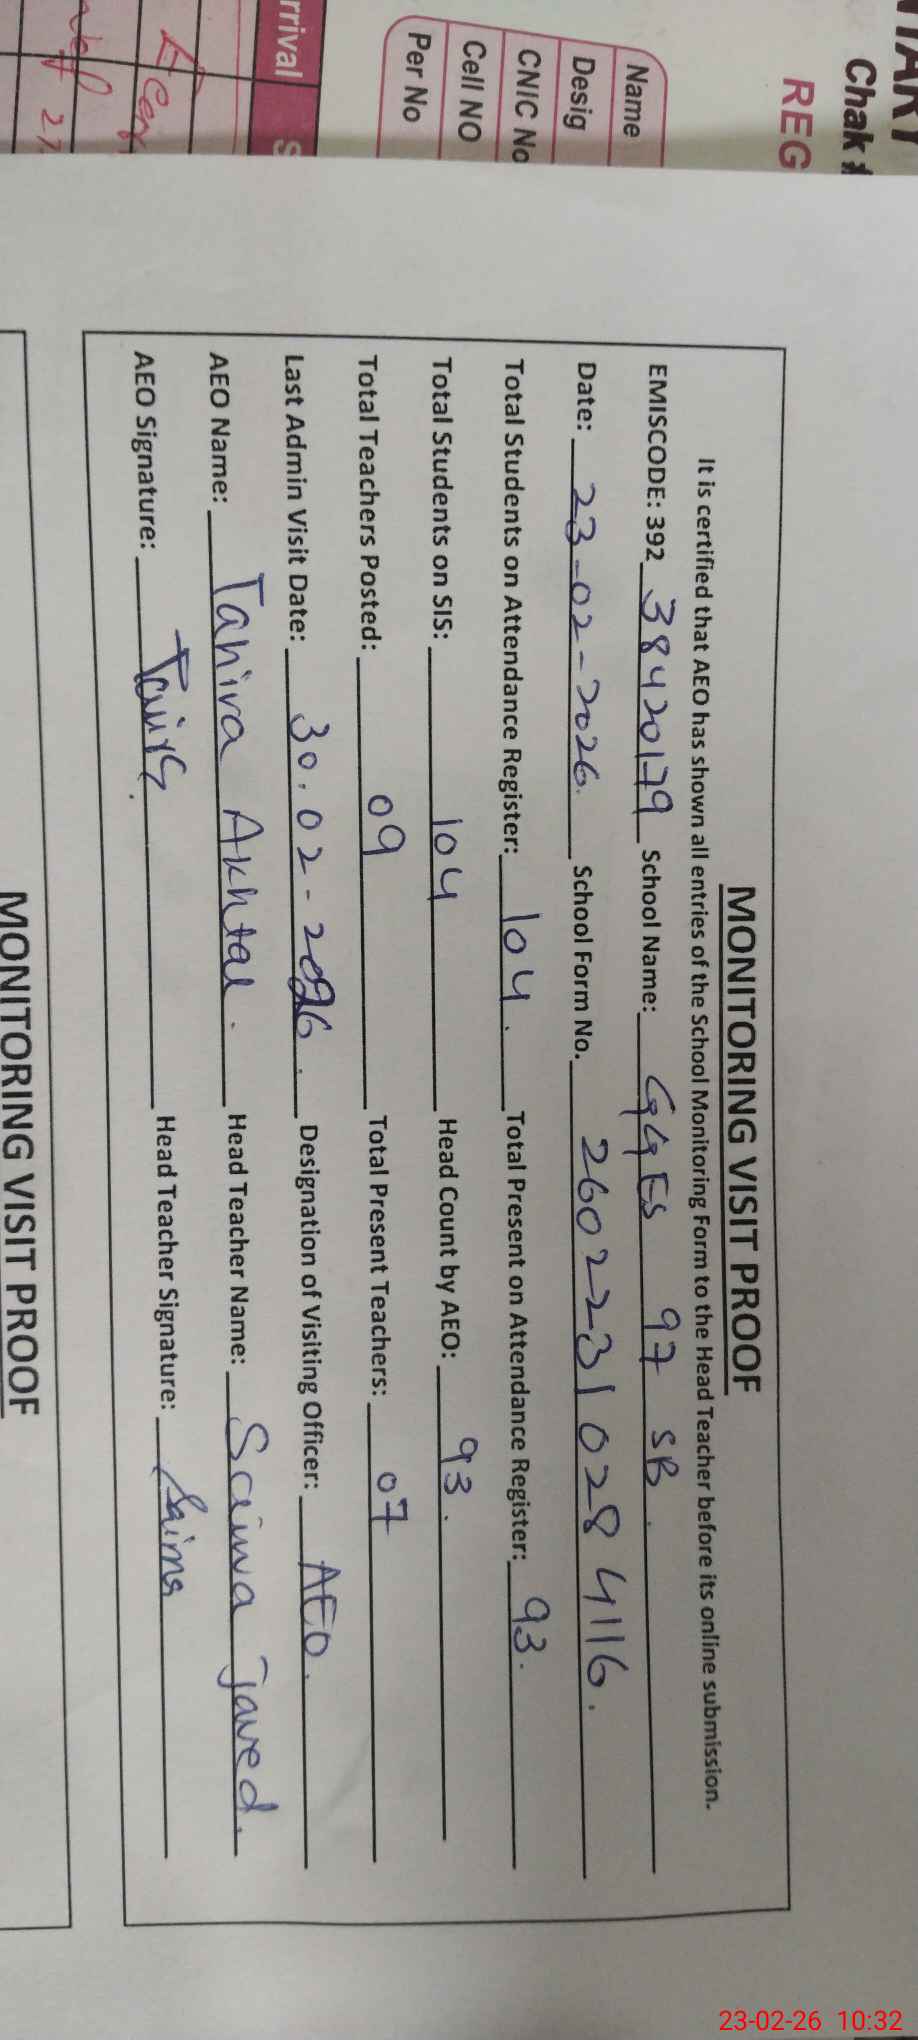 NTARY
Chak #
REG
Name
Desig
CNIC No
Cell NO
Per No
rrival S
MONITORING VISIT PROOF
It is certified that AEO has shown all entries of the School Monitoring Form to the Head Teacher before its online submission.
EMISCODE: 392 38420179 School Name: GGES 97 SB.
Date: 23-02-2026. School Form No. 2602231028 4116.
Total Students on Attendance Register: 104. Total Present on Attendance Register: 93.
Total Students on SIS: 104 Head Count by AEO: 93.
Total Teachers Posted: 09 Total Present Teachers: 07
Last Admin Visit Date: 30.02-2026. Designation of Visiting Officer: AEO.
AEO Name: Tahira Akhtar. Head Teacher Name: Saima Javed.
AEO Signature: Head Teacher Signature: Saima
MONITORING VISIT PROOF
23-02-26 10:32